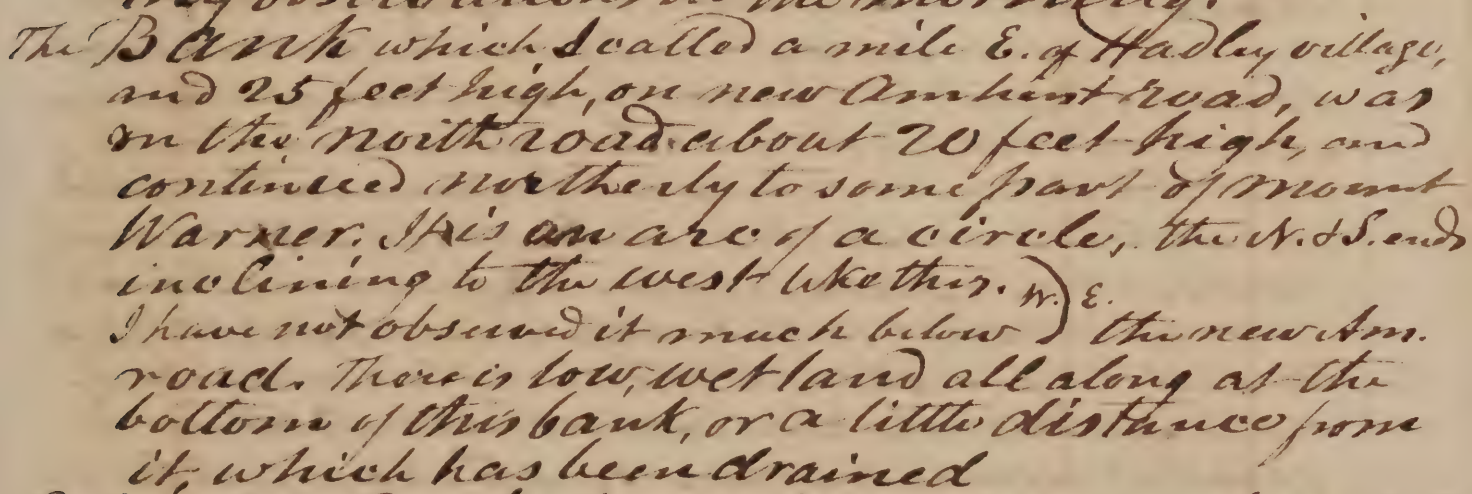 The Bank which I called a mile E. of Hadley village,
and 25 feet high, on new Amherst road, was
on the north road about 20 feet high, and
continued northerly to some part of mount
Warner. It is an arc of a circle, the N. & S. ends
inclining to the west like this. W. ) E.
I have not observed it much below the new Am.
road. There is low, wet land all along at the
bottom of this bank, or a little distance from
it, which has been drained